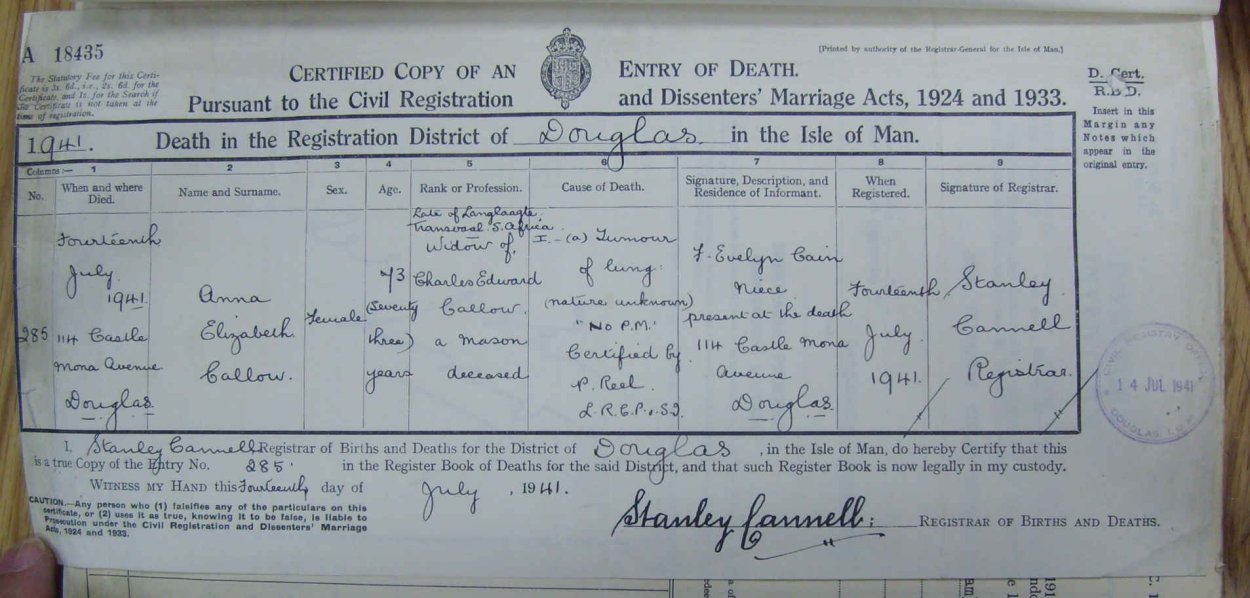 A 18435
The Statutory Fee for this Certi-
ficate is 3s. 6d., i.e., 2s. 6d. for the
Certificate, and 1s. for the Search if
the Certificate is not taken at the
time of registration.
[Printed by authority of the Registrar-General for the Isle of Man.]
CERTIFIED COPY OF AN ENTRY OF DEATH.
Pursuant to the Civil Registration and Dissenters' Marriage Acts, 1924 and 1933.
D. Cert.
R.B.D.
Insert in this
Margin any
Notes which
appear in the
original entry.
1941. Death in the Registration District of Douglas in the Isle of Man.
Columns:— 1 2 3 4 5 6 7 8 9
No.
When and where
Died.
Name and Surname.
Sex.
Age.
Rank or Profession.
Cause of Death.
Signature, Description, and
Residence of Informant.
When
Registered.
Signature of Registrar.
285
Fourteenth
July
1941.
114 Castle
Mona Avenue
Douglas
Anna
Elizabeth
Callow.
Female
73
(seventy
three)
years
Late of Langlaagte,
Transvaal S. Africa.
Widow of
Charles Edward
Callow.
a Mason
deceased
I.-(a) Tumour
of lung
(nature unknown)
"No P.M."
Certified by
P. Reel.
F. Evelyn Cain
Niece
present at the death
114 Castle Mona
Avenue
Douglas
Fourteenth
July
1941.
Stanley
Cannell
Registrar.
CIVIL REGISTRY OFFICE
14 JUL 1941
DOUGLAS, I.O.M.
I, Stanley Cannell Registrar of Births and Deaths for the District of Douglas, in the Isle of Man, do hereby Certify that this
is a true Copy of the Entry No. 285. in the Register Book of Deaths for the said District, and that such Register Book is now legally in my custody.
WITNESS MY HAND this Fourteenth day of July, 1941.
CAUTION.—Any person who (1) falsifies any of the particulars on this
certificate, or (2) uses it as true, knowing it to be false, is liable to
Prosecution under the Civil Registration and Dissenters' Marriage
Acts, 1924 and 1933.
Stanley Cannell: REGISTRAR OF BIRTHS AND DEATHS.